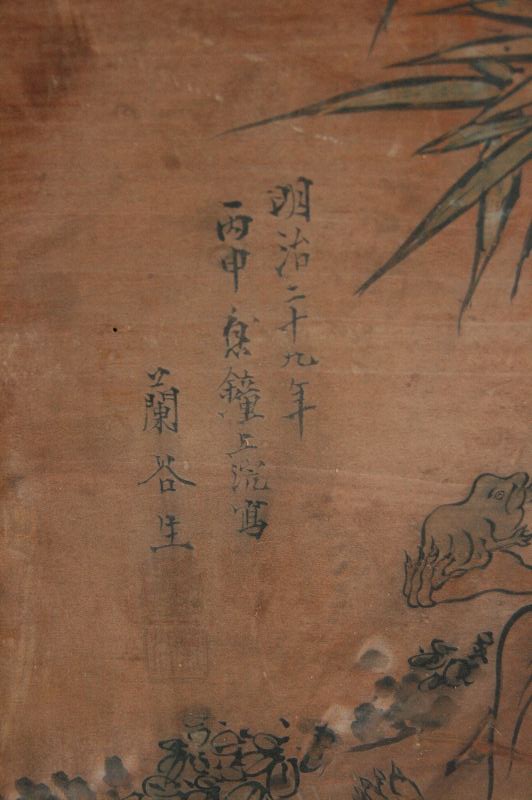 明治二十九年
丙申 鐘上 寫
蘭谷生